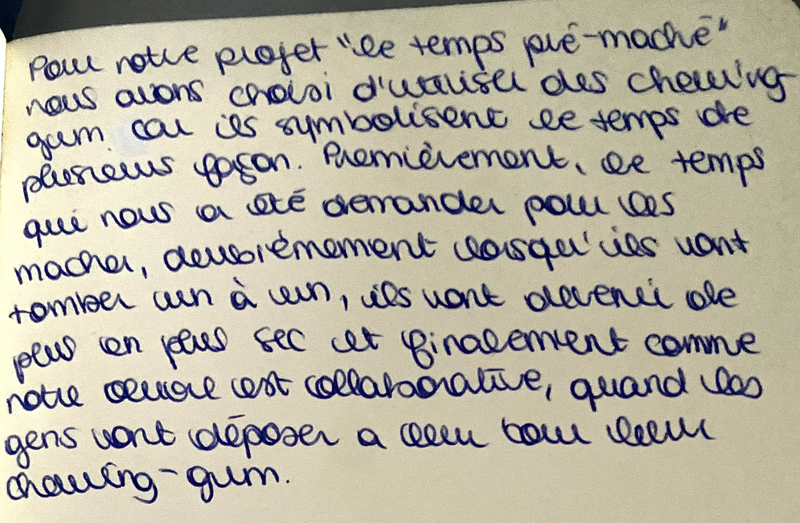 Pour notre projet "le temps pré-maché"
nous avons choisi d'utiliser des chewing-
gum car ils symbolisent le temps de
plusieurs façon. Premièrement, le temps
qui nous a été demander pour les
macher, deuxièmement lorsqu'ils vont
tomber un à un, ils vont devenir de
plus en plus sec et finalement comme
notre œuvre est collaborative, quand les
gens vont déposer a leur tour leur
chewing-gum.